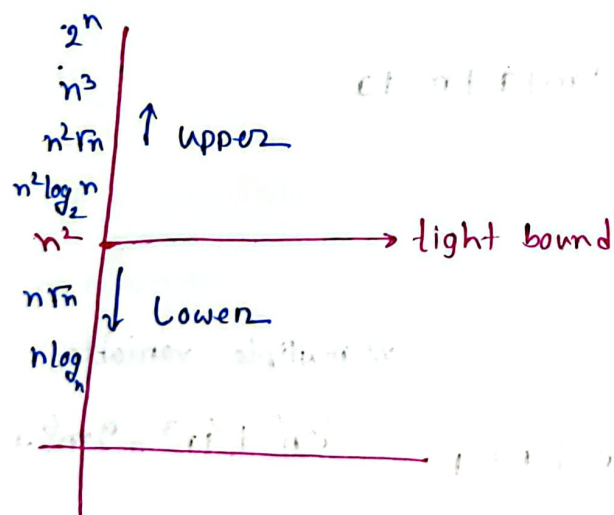 2ⁿ
n³
n²√n ↑ upper
n²log₂n
n² → tight bound
n√n ↓ Lower
nlogₙ